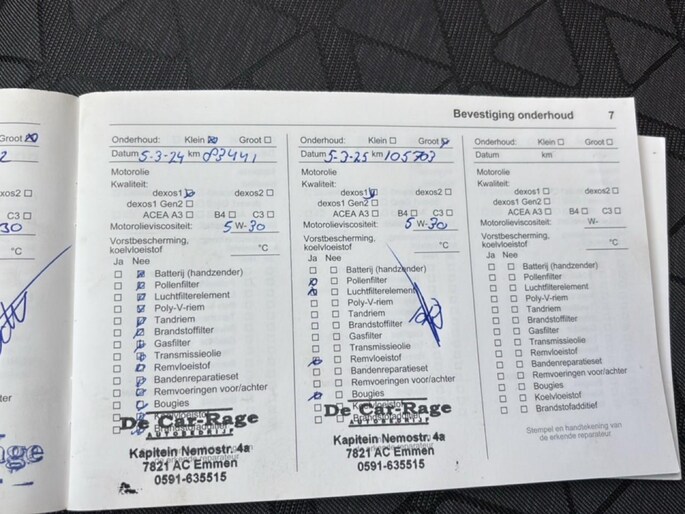 Bevestiging onderhoud 7
Groot
2
xos2
C3
30
°C
ter
Onderhoud: Klein Groot
Datum 5-3-24 km 83441
Motorolie
Kwaliteit:
dexos1 dexos2
dexos1 Gen2
ACEA A3 B4 C3
Motorolieviscositeit: 5 W-30
Vorstbescherming,
koelvloeistof °C
Ja Nee
Batterij (handzender)
Pollenfilter
Luchtfilterelement
Poly-V-riem
Tandriem
Brandstoffilter
Gasfilter
Transmissieolie
Remvloeistof
Bandenreparatieset
Remvoeringen voor/achter
Bougies
Koelvloeistof
Brandstofadditief
De Car-Rage
AUTOBEDRIJF
Kapitein Nemostr. 4a
7821 AC Emmen
0591-635515
Onderhoud: Klein Groot
Datum 5-3-25 km 105703
Motorolie
Kwaliteit:
dexos1 dexos2
dexos1 Gen2
ACEA A3 B4 C3
Motorolieviscositeit: 5 W-30
Vorstbescherming,
koelvloeistof °C
Ja Nee
Batterij (handzender)
Pollenfilter
Luchtfilterelement
Poly-V-riem
Tandriem
Brandstoffilter
Gasfilter
Transmissieolie
Remvloeistof
Bandenreparatieset
Remvoeringen voor/achter
Bougies
Koelvloeistof
Brandstofadditief
De Car-Rage
AUTOBEDRIJF
Kapitein Nemostr. 4a
7821 AC Emmen
0591-635515
Onderhoud: Klein Groot
Datum km
Motorolie
Kwaliteit:
dexos1 dexos2
dexos1 Gen2
ACEA A3 B4 C3
Motorolieviscositeit: W-
Vorstbescherming,
koelvloeistof °C
Ja Nee
Batterij (handzender)
Pollenfilter
Luchtfilterelement
Poly-V-riem
Tandriem
Brandstoffilter
Gasfilter
Transmissieolie
Remvloeistof
Bandenreparatieset
Remvoeringen voor/achter
Bougies
Koelvloeistof
Brandstofadditief
Stempel en handtekening van
de erkende reparateur